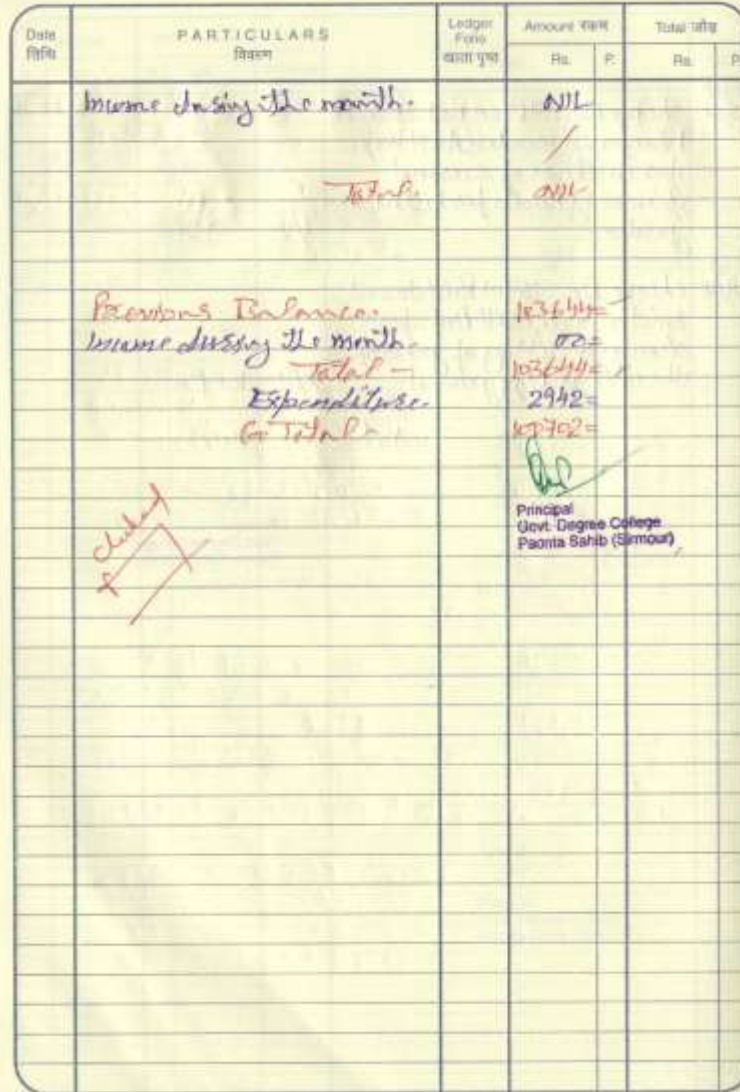 Date PARTICULARS Ledger Folio Amount रकम Total जोड़
तिथि विवरण खाता पृष्ठ Rs. P. Rs. P.
Income during the month. NIL
Total. NIL
Previous Balance. 103644=
Income during the month. 00=
Total - 103644=
Expenditure. 2942=
G. Total - 100702=
Checked
Principal
Govt. Degree College
Paonta Sahib (Sirmour)